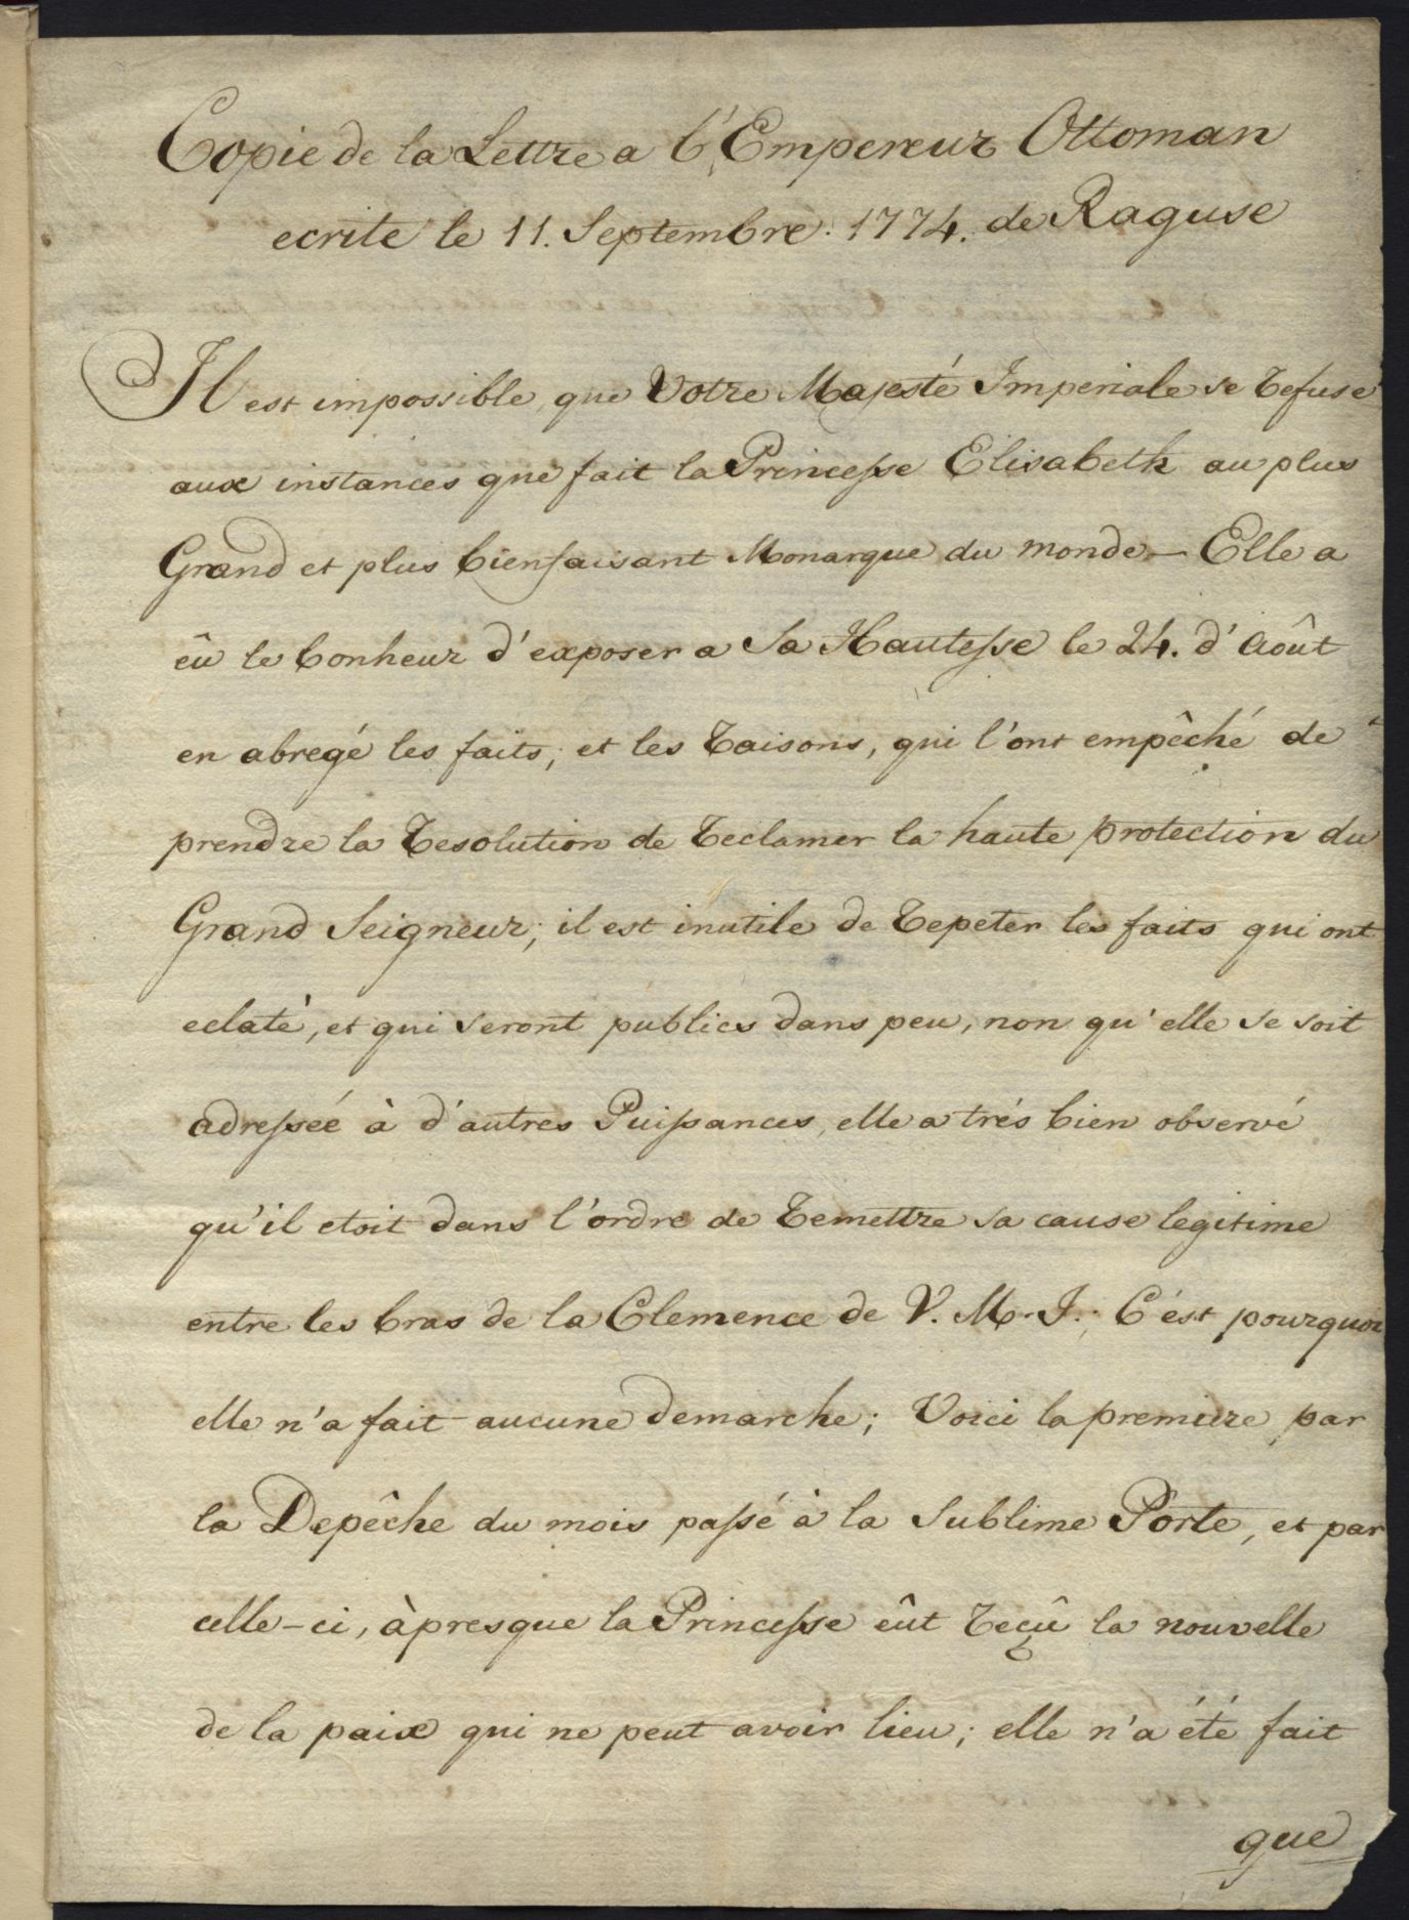 Copie de la Lettre a l'Empereur Ottoman
ecrite le 11. Septembre. 1774. de Raguse
Il est impossible, que Votre Majesté Imperiale se refuse
aux instances que fait la Princesse Elisabeth au plus
Grand et plus bienfaisant Monarque du monde — Elle a
êu le bonheur d'exposer a Sa Hautesse le 24. d'Août
en abregé les faits, et les raisons, qui l'ont empêché de
prendre la resolution de reclamer la haute protection du
Grand Seigneur; il est inutile de repeter les faits qui ont
eclaté, et qui seront publics dans peu, non qu'elle se soit
adressée à d'autres Puissances, elle a trés bien observé
qu'il etoit dans l'ordre de remettre sa cause legitime
entre les bras de la Clemence de V. M. I. C'est pourquoi
elle n'a fait aucune demarche; Voici la premiere par
la Depêche du mois passé à la Sublime Porte, et par
celle-ci, àpresque la Princesse êut reçû la nouvelle
de la paix qui ne peut avoir lieu; elle n'a été fait
que